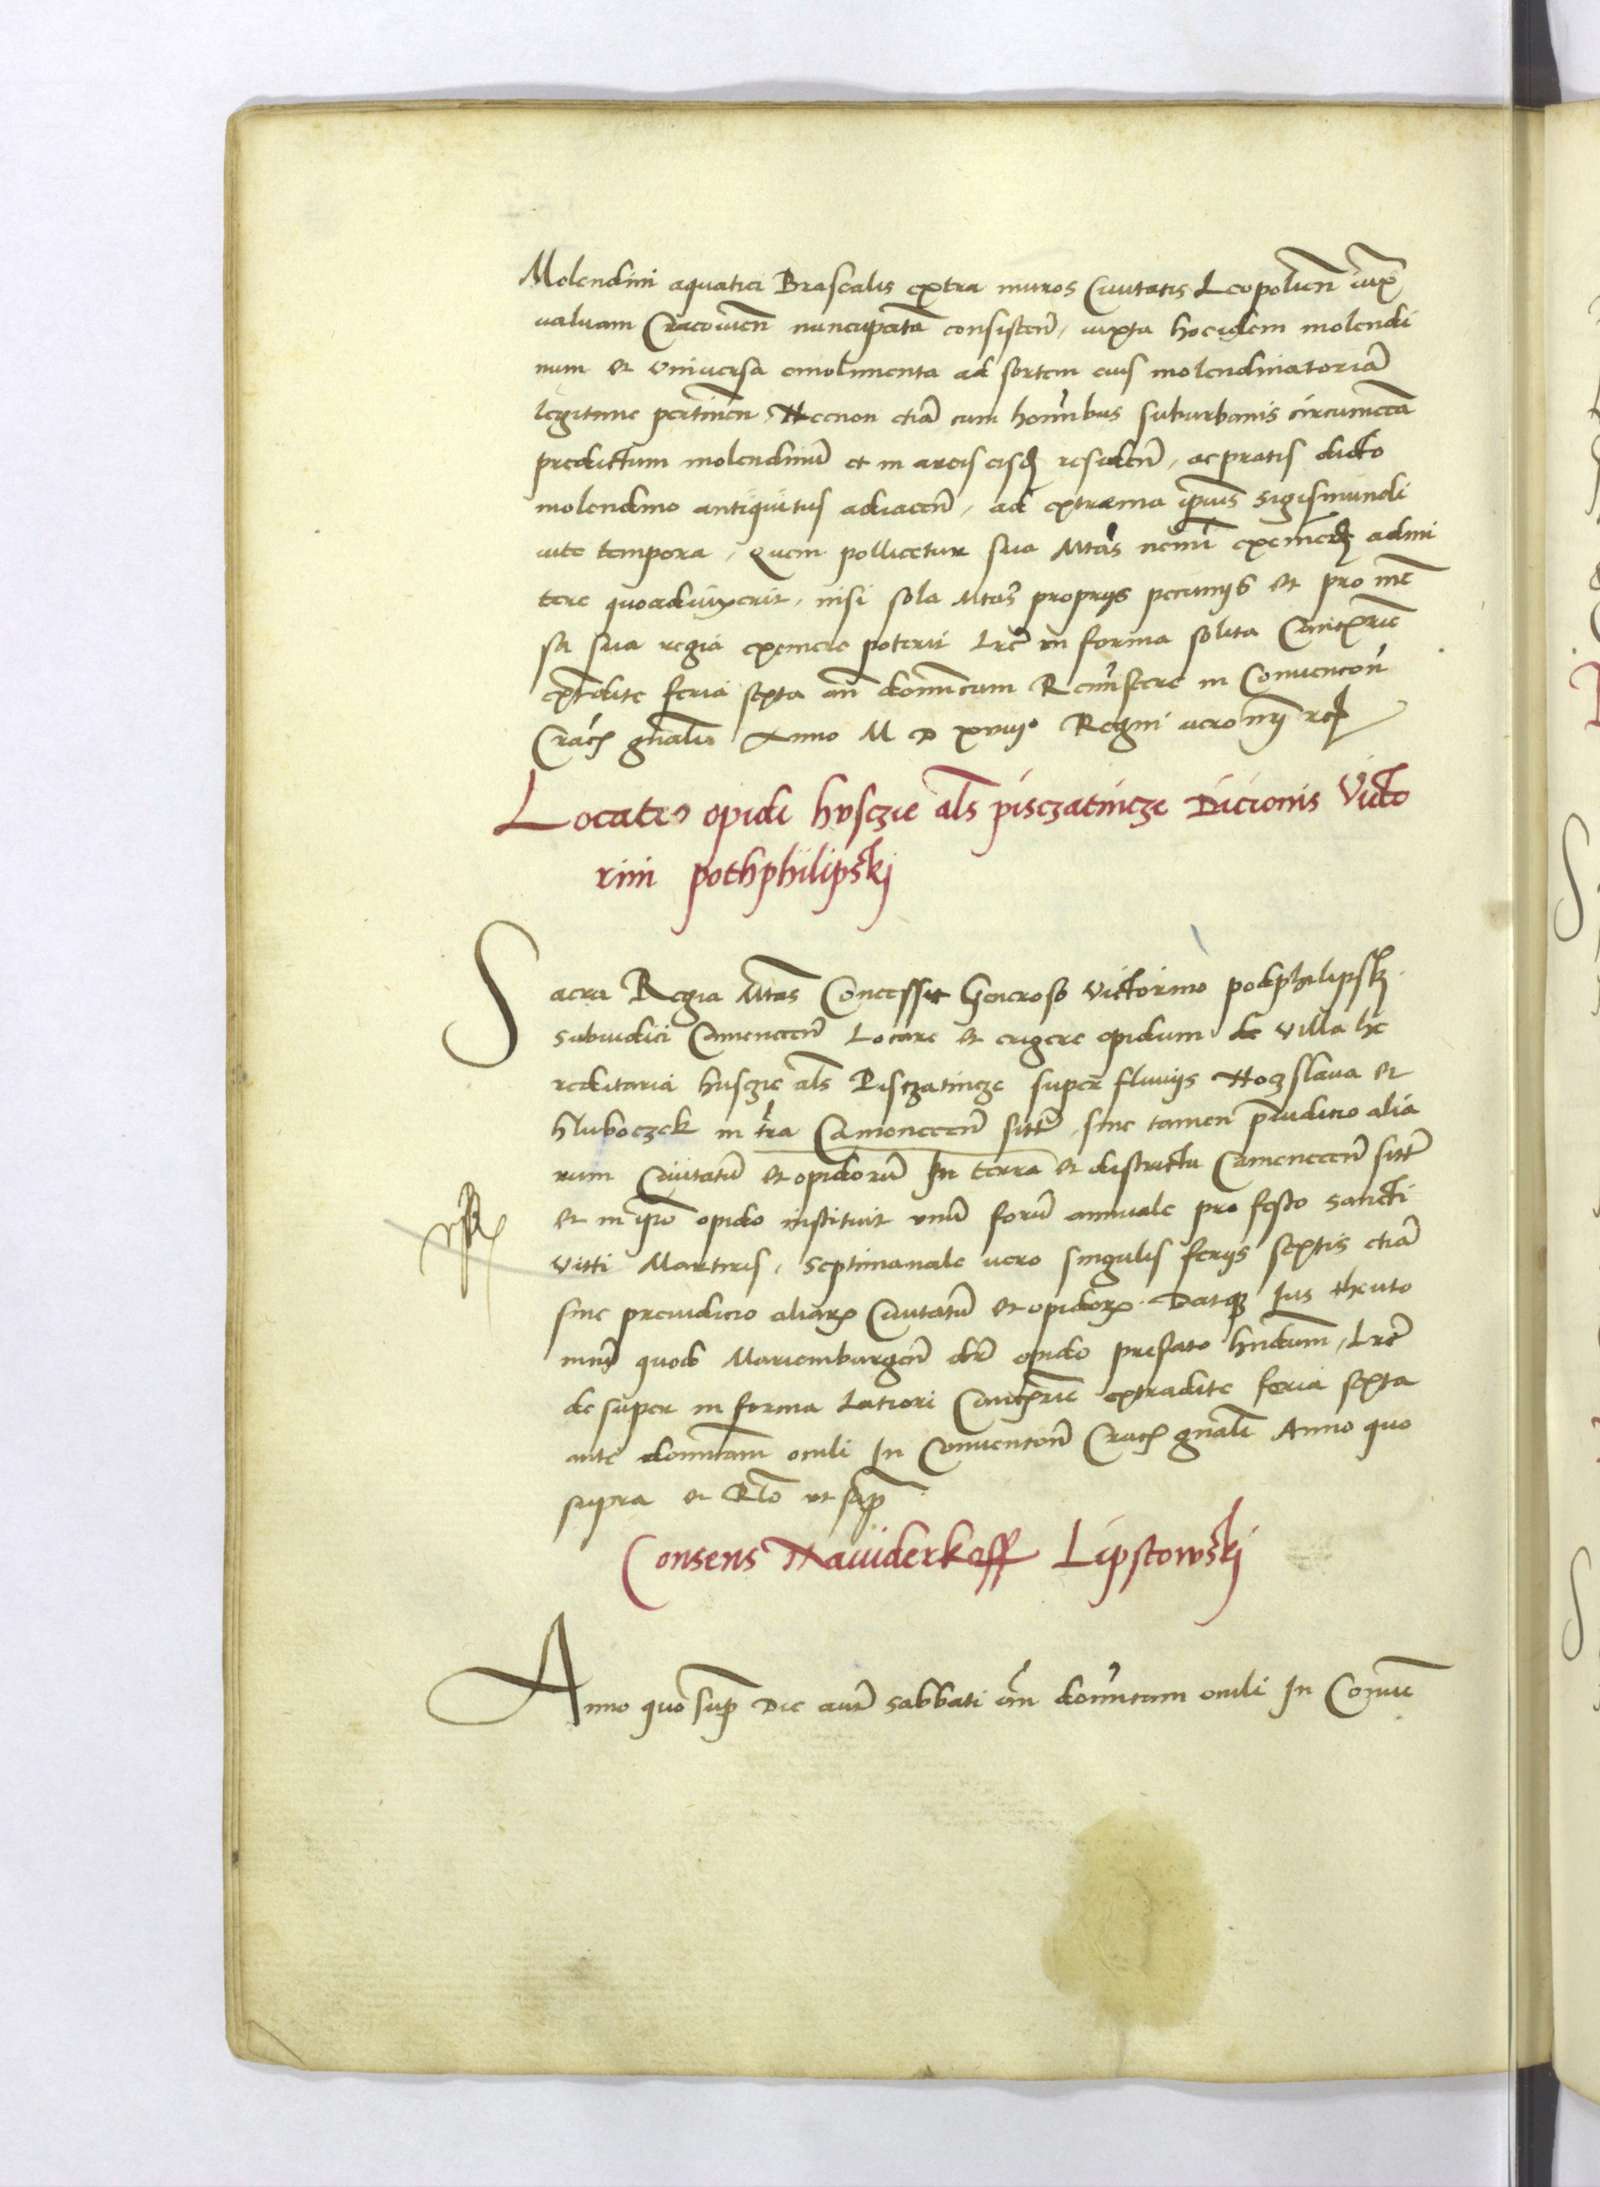 Molendini aquatici Brasealis extra muros Civitatis Leopolien iuxta
valvam Cracovien nuncupatã consisten, iuxta hocidem molendi
num et universa emolimenta ad sortem eius molendinatoriã
legitime pertinen Necnon etiã cum hominibus suburbanis circumcca
predictum molendinũ et in areis eisdẽ residen, ac pratis dicto
molendino antiquitus adiacen, ad extrema ipsius Sigismundi
vite tempora, Quem pollicetur sua Mtas nemi exemendũ admi
tere quoadvixerit, nisi sola Mtas proprijs pecunijs et pro me
sa sua regia exemere poterit Lre in forma solita
extradite feria sexta an dominicam Reminiscere in Convencon
Crac gnali Anno M D xviij° Regni vero
Locatio opidi husczie als pisczatincze Dicionis Victo
rini pothphilipskj
Sacra Regia Mtas Concessit Generoso Victorino podphilipskj
Subiudici Camenecen Locare et erigere opidum de villa he
reditaria husczie als Pisczatincze super fluvijs Hoczslava et
hluboczek in tra Camenecen sittũ, sine tamen preiudicio alia
rum Civitatũ et opidorũ In terra et districtu Camenecen sittũ
et in quo opido instituit unũ forũ annuale pro festo sancti
Vitti Martiris, septimanale vero singulis ferijs sextis etiã
sine preiudicio aliarum Civitatũ et opidorum. Datque Ius theuto
nicũ quod Mariemburgen dr opido prefato hndum, Lre
de super in forma latiori extradite feria sexta
ante dominicam oculi In Convencone Crac gnali Anno quo
supra et Rto ut sup
Consens Naviderkoff Lipstowskj
Anno quo sup Die aut sabbati an dominicam oculi In Conve